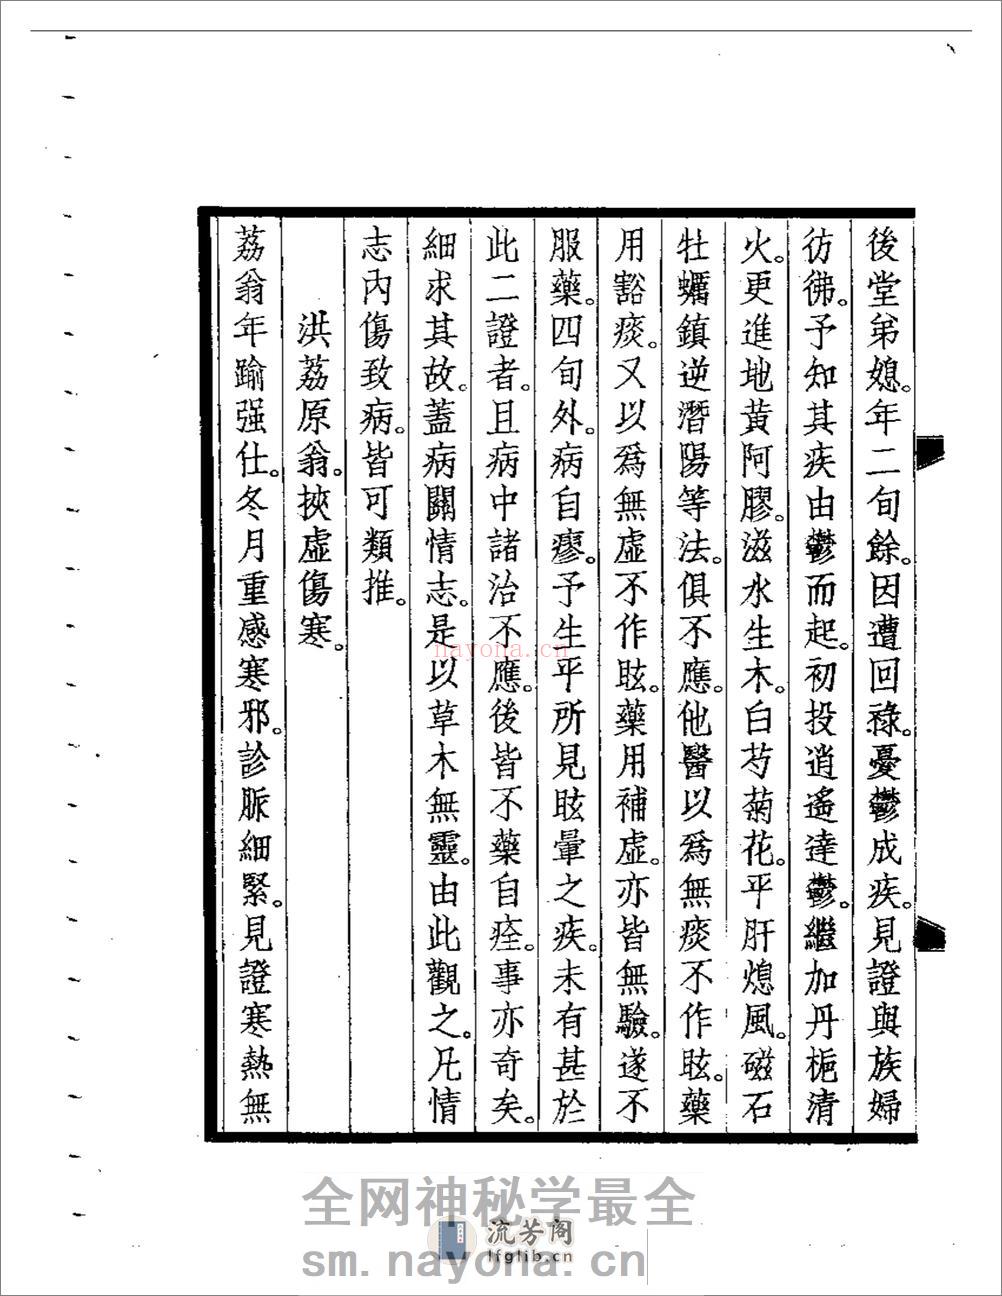 後堂弟媳。年二旬餘。因遭回祿。憂鬱成疾。見證與族婦
彷彿。予知其疾由鬱而起。初投逍遙達鬱。繼加丹梔清
火。更進地黃阿膠。滋水生木。白芍菊花。平肝熄風。磁石
牡蠣鎮逆潛陽等法。俱不應。他醫以爲無痰不作眩。藥
用豁痰。又以爲無虛不作眩。藥用補虛。亦皆無驗。遂不
服藥。四旬外。病自瘳。予生平所見眩暈之疾。未有甚於
此二證者。且病中諸治不應。後皆不藥自痊。事亦奇矣。
細求其故。蓋病關情志。是以草木無靈。由此觀之。凡情
志內傷致病。皆可類推。
洪荔原翁。挾虛傷寒。
荔翁年踰强仕。冬月重感寒邪。診脈細緊。見證寒熱無
nayona.cn
全网神秘学最全
流芳阁
lfglib.cn
sm.nayona.cn